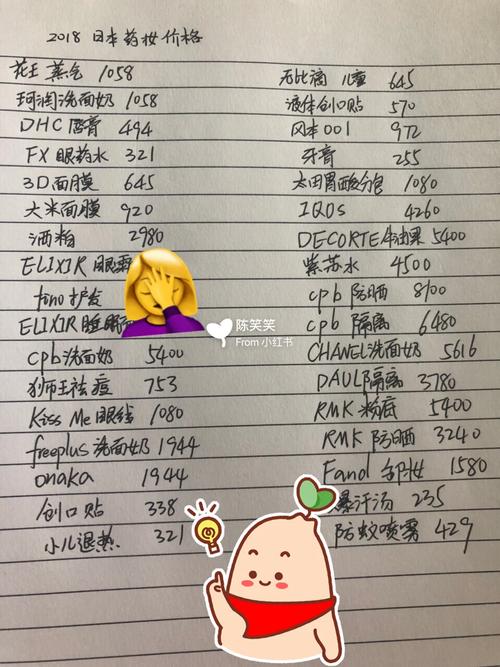 2018 日本药妆价格
花王 蒸气 1058
珂润洗面奶 1058
DHC 唇膏 494
FX 眼药水 321
3D 面膜 645
大米面膜 920
酒粕 2980
ELIXIR 眼霜
fino 护发
ELIXIR 睡眠面
cpb 洗面奶 5400
狮王祛痘 753
Kiss Me 眼线 1080
freeplus 洗面奶 1944
onaka 1944
创口贴 338
小儿退热 321
无比滴 儿童 645
液体创口贴 570
冈本001 972
牙膏 255
太田胃酸分包 1080
IQOS 4260
DECORTE 牛油果 5400
紫苏水 4500
cpb 防晒 8100
cpb 隔离 6480
CHANEL 洗面奶 5616
DAUL 隔离 3780
RMK 粉底 5400
RMK 防晒 3240
Fand 卸妆 1580
爆汗汤 235
防蚊喷雾 429
陈笑笑
From 小红书